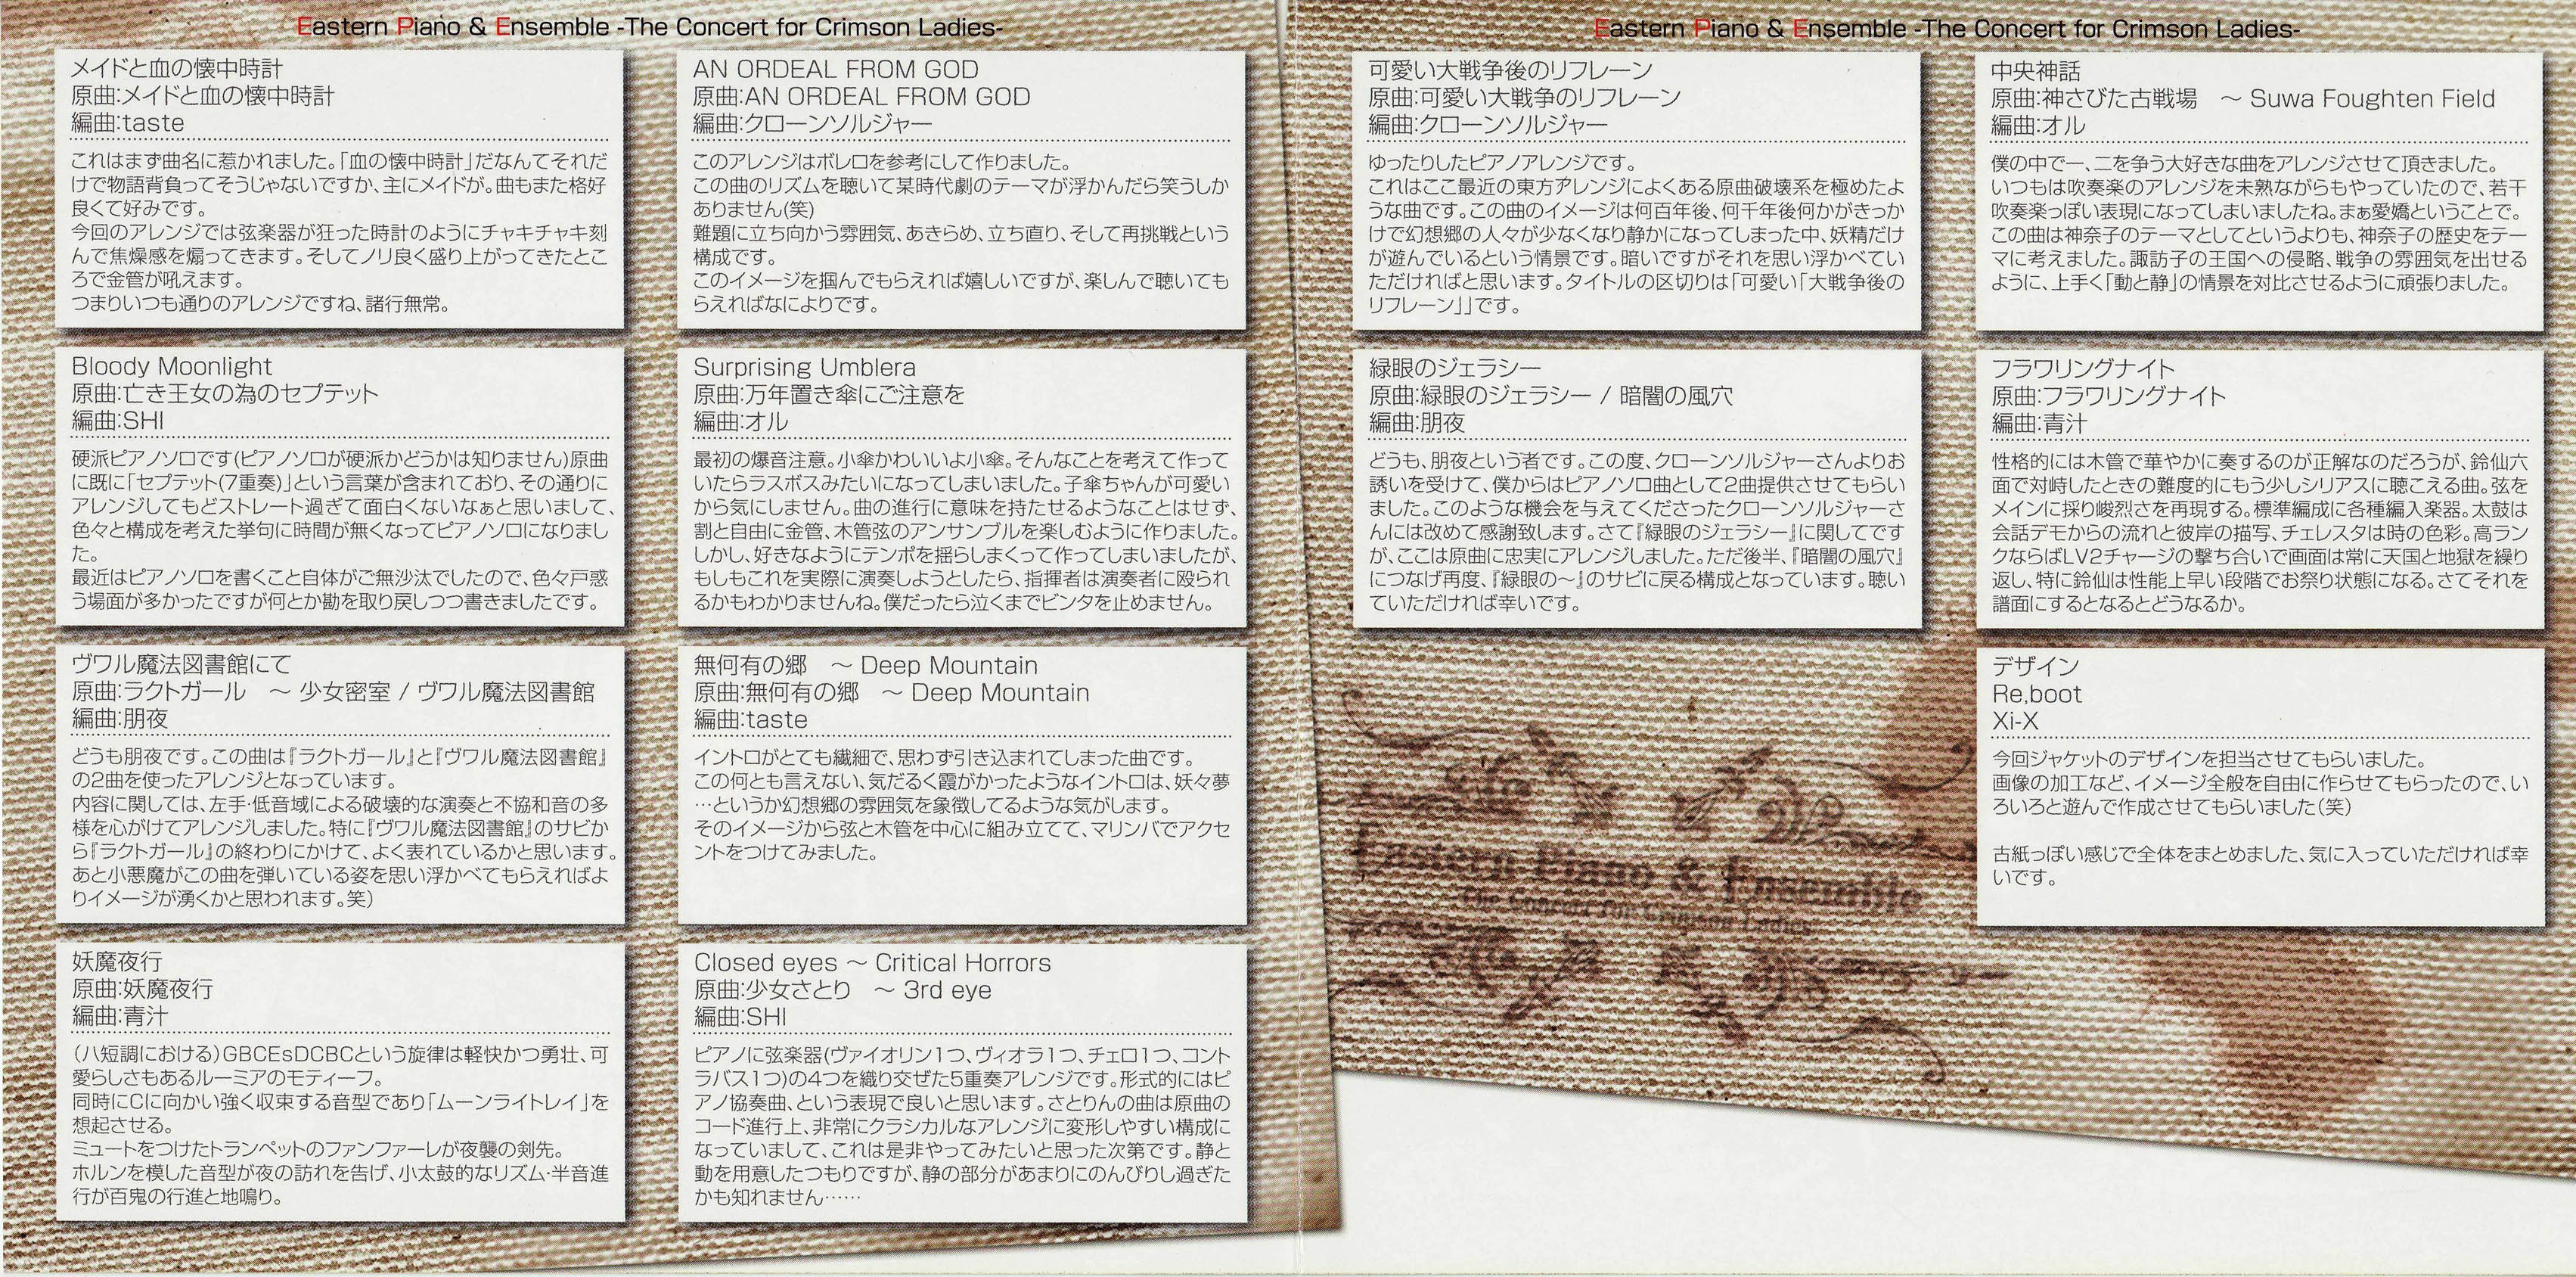 Eastern Piano & Ensemble -The Concert for Crimson Ladies-
メイドと血の懐中時計
原曲:メイドと血の懐中時計
編曲:taste
これはまず曲名に惹かれました。「血の懐中時計」だなんてそれだ
けで物語背負ってそうじゃないですか、主にメイドが。曲もまた格好
良くて好みです。
今回のアレンジでは弦楽器が狂った時計のようにチャキチャキ刻
んで焦燥感を煽ってきます。そしてノリ良く盛り上がってきたとこ
ろで金管が吼えます。
つまりいつも通りのアレンジですね、諸行無常。
Bloody Moonlight
原曲:亡き王女の為のセプテット
編曲:SHI
硬派ピアノソロです(ピアノソロが硬派かどうかは知りません)原曲
に既に「セプテット(7重奏)」という言葉が含まれており、その通りに
アレンジしてもどストレート過ぎて面白くないなぁと思いまして、
色々と構成を考えた挙句に時間が無くなってピアノソロになりまし
た。
最近はピアノソロを書くこと自体がご無沙汰でしたので、色々戸惑
う場面が多かったですが何とか勘を取り戻しつつ書きましたです。
ヴワル魔法図書館にて
原曲:ラクトガール　～ 少女密室 / ヴワル魔法図書館
編曲:朋夜
どうも朋夜です。この曲は『ラクトガール』と『ヴワル魔法図書館』
の2曲を使ったアレンジとなっています。
内容に関しては、左手・低音域による破壊的な演奏と不協和音の多
様を心がけてアレンジしました。特に『ヴワル魔法図書館』のサビか
ら『ラクトガール』の終わりにかけて、よく表れているかと思います。
あと小悪魔がこの曲を弾いている姿を思い浮かべてもらえればよ
りイメージが湧くかと思われます。笑)
妖魔夜行
原曲:妖魔夜行
編曲:青汁
(ハ短調における)GBCEsDCBCという旋律は軽快かつ勇壮、可
愛らしさもあるルーミアのモティーフ。
同時にCに向かい強く収束する音型であり「ムーンライトレイ」を
想起させる。
ミュートをつけたトランペットのファンファーレが夜襲の剣先。
ホルンを模した音型が夜の訪れを告げ、小太鼓的なリズム・半音進
行が百鬼の行進と地鳴り。
AN ORDEAL FROM GOD
原曲:AN ORDEAL FROM GOD
編曲:クローンソルジャー
このアレンジはボレロを参考にして作りました。
この曲のリズムを聴いて某時代劇のテーマが浮かんだら笑うしか
ありません(笑)
難題に立ち向かう雰囲気、あきらめ、立ち直り、そして再挑戦という
構成です。
このイメージを掴んでもらえれば嬉しいですが、楽しんで聴いても
らえればなによりです。
Surprising Umblera
原曲:万年置き傘にご注意を
編曲:オル
最初の爆音注意。小傘かわいいよ小傘。そんなことを考えて作って
いたらラスボスみたいになってしまいました。子傘ちゃんが可愛い
から気にしません。曲の進行に意味を持たせるようなことはせず、
割と自由に金管、木管弦のアンサンブルを楽しむように作りました。
しかし、好きなようにテンポを揺らしまくって作ってしまいましたが、
もしもこれを実際に演奏しようとしたら、指揮者は演奏者に殴られ
るかもわかりませんね。僕だったら泣くまでビンタを止めません。
無何有の郷　～ Deep Mountain
原曲:無何有の郷　～ Deep Mountain
編曲:taste
イントロがとても繊細で、思わず引き込まれてしまった曲です。
この何とも言えない、気だるく霞がかったようなイントロは、妖々夢
…というか幻想郷の雰囲気を象徴してるような気がします。
そのイメージから弦と木管を中心に組み立てて、マリンバでアクセ
ントをつけてみました。
Closed eyes ～ Critical Horrors
原曲:少女さとり　～ 3rd eye
編曲:SHI
ピアノに弦楽器(ヴァイオリン1つ、ヴィオラ1つ、チェロ1つ、コント
ラバス1つ)の4つを織り交ぜた5重奏アレンジです。形式的にはピ
アノ協奏曲、という表現で良いと思います。さとりんの曲は原曲の
コード進行上、非常にクラシカルなアレンジに変形しやすい構成に
なっていまして、これは是非やってみたいと思った次第です。静と
動を用意したつもりですが、静の部分があまりにのんびりし過ぎた
かも知れません……
Eastern Piano & Ensemble -The Concert for Crimson Ladies-
可愛い大戦争後のリフレーン
原曲:可愛い大戦争のリフレーン
編曲:クローンソルジャー
ゆったりしたピアノアレンジです。
これはここ最近の東方アレンジによくある原曲破壊系を極めたよ
うな曲です。この曲のイメージは何百年後、何千年後何かがきっか
けで幻想郷の人々が少なくなり静かになってしまった中、妖精だけ
が遊んでいるという情景です。暗いですがそれを思い浮かべてい
ただければと思います。タイトルの区切りは「可愛い「大戦争後の
リフレーン」」です。
緑眼のジェラシー
原曲:緑眼のジェラシー / 暗闇の風穴
編曲:朋夜
どうも、朋夜という者です。この度、クローンソルジャーさんよりお
誘いを受けて、僕からはピアノソロ曲として2曲提供させてもらい
ました。このような機会を与えてくださったクローンソルジャーさ
んには改めて感謝致します。さて『緑眼のジェラシー』に関してです
が、ここは原曲に忠実にアレンジしました。ただ後半、『暗闇の風穴』
につなげ再度、『緑眼の～』のサビに戻る構成となっています。聴い
ていただければ幸いです。
中央神話
原曲:神さびた古戦場　～ Suwa Foughten Field
編曲:オル
僕の中で一、二を争う大好きな曲をアレンジさせて頂きました。
いつもは吹奏楽のアレンジを未熟ながらもやっていたので、若干
吹奏楽っぽい表現になってしまいましたね。まぁ愛嬌ということで。
この曲は神奈子のテーマとしてというよりも、神奈子の歴史をテー
マに考えました。諏訪子の王国への侵略、戦争の雰囲気を出せる
ように、上手く「動と静」の情景を対比させるように頑張りました。
フラワリングナイト
原曲:フラワリングナイト
編曲:青汁
性格的には木管で華やかに奏するのが正解なのだろうが、鈴仙六
面で対峙したときの難度的にもう少しシリアスに聴こえる曲。弦を
メインに採り峻烈さを再現する。標準編成に各種編入楽器。太鼓は
会話デモからの流れと彼岸の描写、チェレスタは時の色彩。高ラン
クならばLV2チャージの撃ち合いで画面は常に天国と地獄を繰り
返し、特に鈴仙は性能上早い段階でお祭り状態になる。さてそれを
譜面にするとなるとどうなるか。
デザイン
Re,boot
Xi-X
今回ジャケットのデザインを担当させてもらいました。
画像の加工など、イメージ全般を自由に作らせてもらったので、い
ろいろと遊んで作成させてもらいました(笑)
古紙っぽい感じで全体をまとめました、気に入っていただければ幸
いです。
Eastern Piano & Ensemble
The Concert for Crimson Ladies